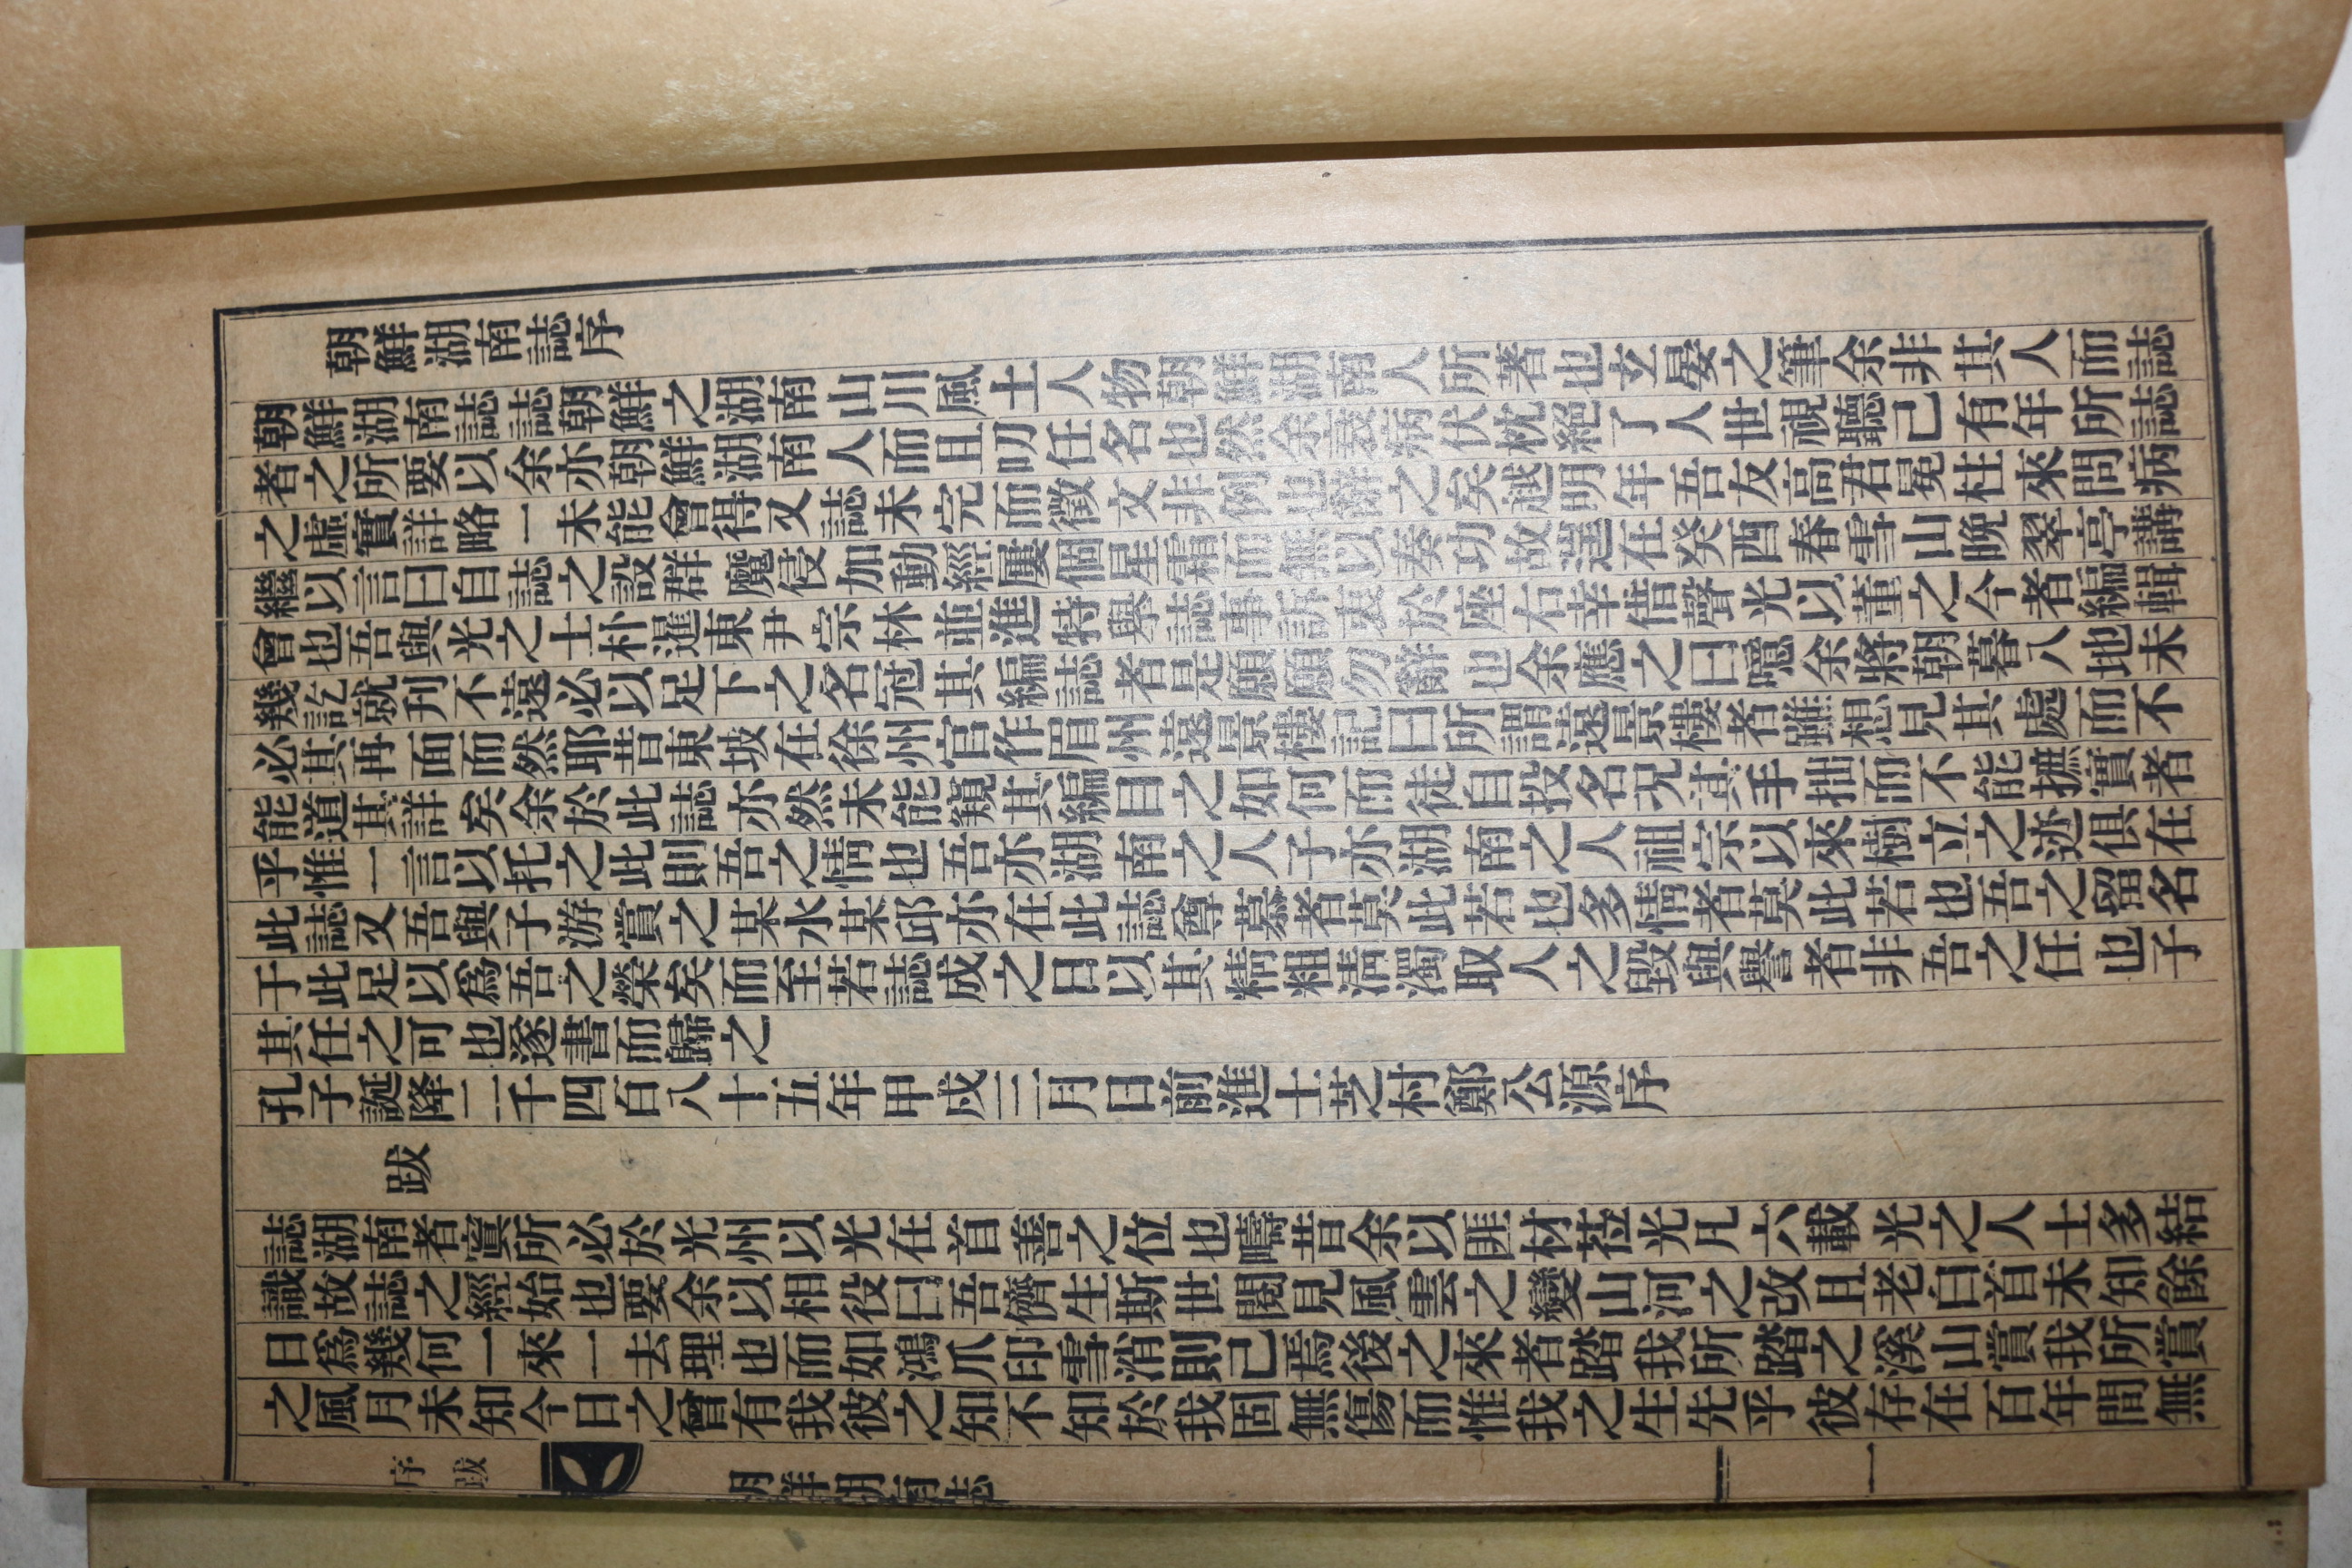 朝鮮湖南誌序
朝鮮湖南誌誌朝鮮之湖南山川風土人物朝鮮湖南人所著也立晏之筆余非其人而誌
者之所要以余亦朝鮮湖南人而且叨任名也然余衰病伏枕絕了人世視聽已有年所誌
之虛實詳略一未能會得又誌未完而徵文非例也辭之矣越明年吾友高君冕柱來問病
繼以言曰自誌之設群魔侵加動經屢個星霜而無以奏功故遑在癸酉春雪山晩翠亭講
會也吾與光之士朴暹東尹宗林並進特擧誌事訴衷於座右幸借聲光以董之今者編輯
幾訖就刊不遠必以足下之名冠其編誌者是願願勿辭也余應之曰噫余將朝暮八地未
必其再面而然耶昔東坡在徐州官作眉州遠景樓記曰所謂遠景樓者雖想見其處而不
能道其詳矣余於此誌亦然未能窺其編目之如何而徒自投名况其手拙而不能摭實者
乎惟一言以托之此則吾之情也吾亦湖南之人子亦湖南之人祖宗以來樹立之迹俱在
此誌又吾與子游賞之某水某邱亦在此誌尊慕者莫此若也多情者莫此若也吾之留名
于此足以爲吾之榮矣而至若誌成之日以其精粗淸濁取人之毁與譽者非吾之任也子
其任之可也遂書而歸之
孔子誕降二千四百八十五年甲戌三月日前進士芝村鄭公源序
跋
誌湖南者寘所必於光州以光在首善之位也疇昔余以匪材莅光凡六載光之人士多結
識故誌之經始也要余以相役曰吾儕生斯世閱見風雲之變山河之改且老白首未知餘
日爲幾何一來一去理也而如鴻爪印雪消則已焉後之來者踏我所踏之溪山賞我所賞
之風月未知今日之曾有我彼之知不知於我固無傷而惟我之生先乎彼存在百年間無
朝鮮湖南誌
序
跋
一